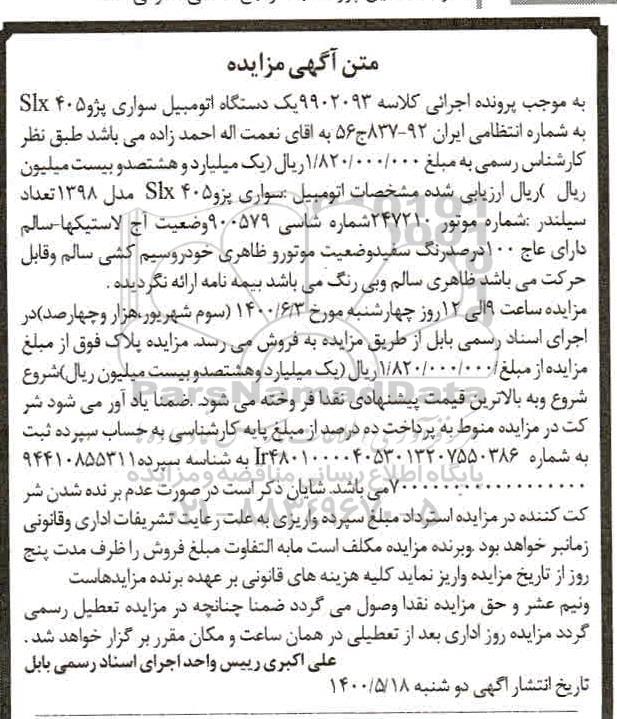 متن آگهی مزایده
به موجب پرونده اجرائی کلاسه ۹۹۰۲۰۹۳یک دستگاه اتومبیل سواری پژو۴۰۵ Slx
به شماره انتظامی ایران ۹۲-۸۳۷ج۵۶ به اقای نعمت اله احمد زاده می باشد طبق نظر
کارشناس رسمی به مبلغ ۱/۸۲۰/۰۰۰/۰۰۰ریال (یک میلیارد و هشتصدو بیست میلیون
ریال )ریال ارزیابی شده مشخصات اتومبیل :سواری پژو۴۰۵ Slx مدل ۱۳۹۸تعداد
سیلندر :شماره موتور ۲۴۷۲۱۰شماره شاسی ۹۰۰۵۷۹وضعیت آج لاستیکها-سالم
دارای عاج ۱۰۰درصدرنگ سفیدوضعیت موتورو ظاهری خودروسیم کشی سالم وقابل
حرکت می باشد ظاهری سالم وبی رنگ می باشد بیمه نامه ارائه نگردیده .
مزایده ساعت ۹الی ۱۲روز چهارشنبه مورخ ۱۴۰۰/۶/۳ (سوم شهریور،هزار وچهارصد)در
اجرای اسناد رسمی بابل از طریق مزایده به فروش می رسد. مزایده پلاک فوق از مبلغ
مزایده از مبلغ/۱/۸۲۰/۰۰۰/۰۰۰ریال (یک میلیارد وهشتصدو بیست میلیون ریال)شروع
شروع وبه بالاترین قیمت پیشنهادی نقدا فر وخته می شود .ضمنا یاد آور می شود شر
کت در مزایده منوط به پرداخت ده درصد از مبلغ پایه کارشناسی به حساب سپرده ثبت
به شماره Ir۴۸۰۱۰۰۰۰۴۰۵۳۰۱۳۲۰۷۵۵۰۳۸۶ به شناسه سپرده۹۴۴۱۰۸۵۵۳۱۱
می باشد. شایان ذکر است در صورت عدم بر نده شدن شر
کت کننده در مزایده استرداد مبلغ سپرده واریزی به علت رعایت تشریفات اداری وقانونی
زمانبر خواهد بود .وبرنده مزایده مکلف است مابه التفاوت مبلغ فروش را ظرف مدت پنج
روز از تاریخ مزایده واریز نماید کلیه هزینه های قانونی بر عهده برنده مزایدهاست
ونیم عشر و حق مزایده نقدا وصول می گردد ضمنا چنانچه در مزایده تعطیل رسمی
گردد مزایده روز اداری بعد از تعطیلی در همان ساعت و مکان مقرر بر گزار خواهد شد .
علی اکبری رییس واحد اجرای اسناد رسمی بابل
تاریخ انتشار اگهی دو شنبه ۱۴۰۰/۵/۱۸
ParsNamadData
پایگاه اطلاع رسانی مناقصه و مزایده
۰۲۱-۸۸۳۴۹۶۷۰-۵